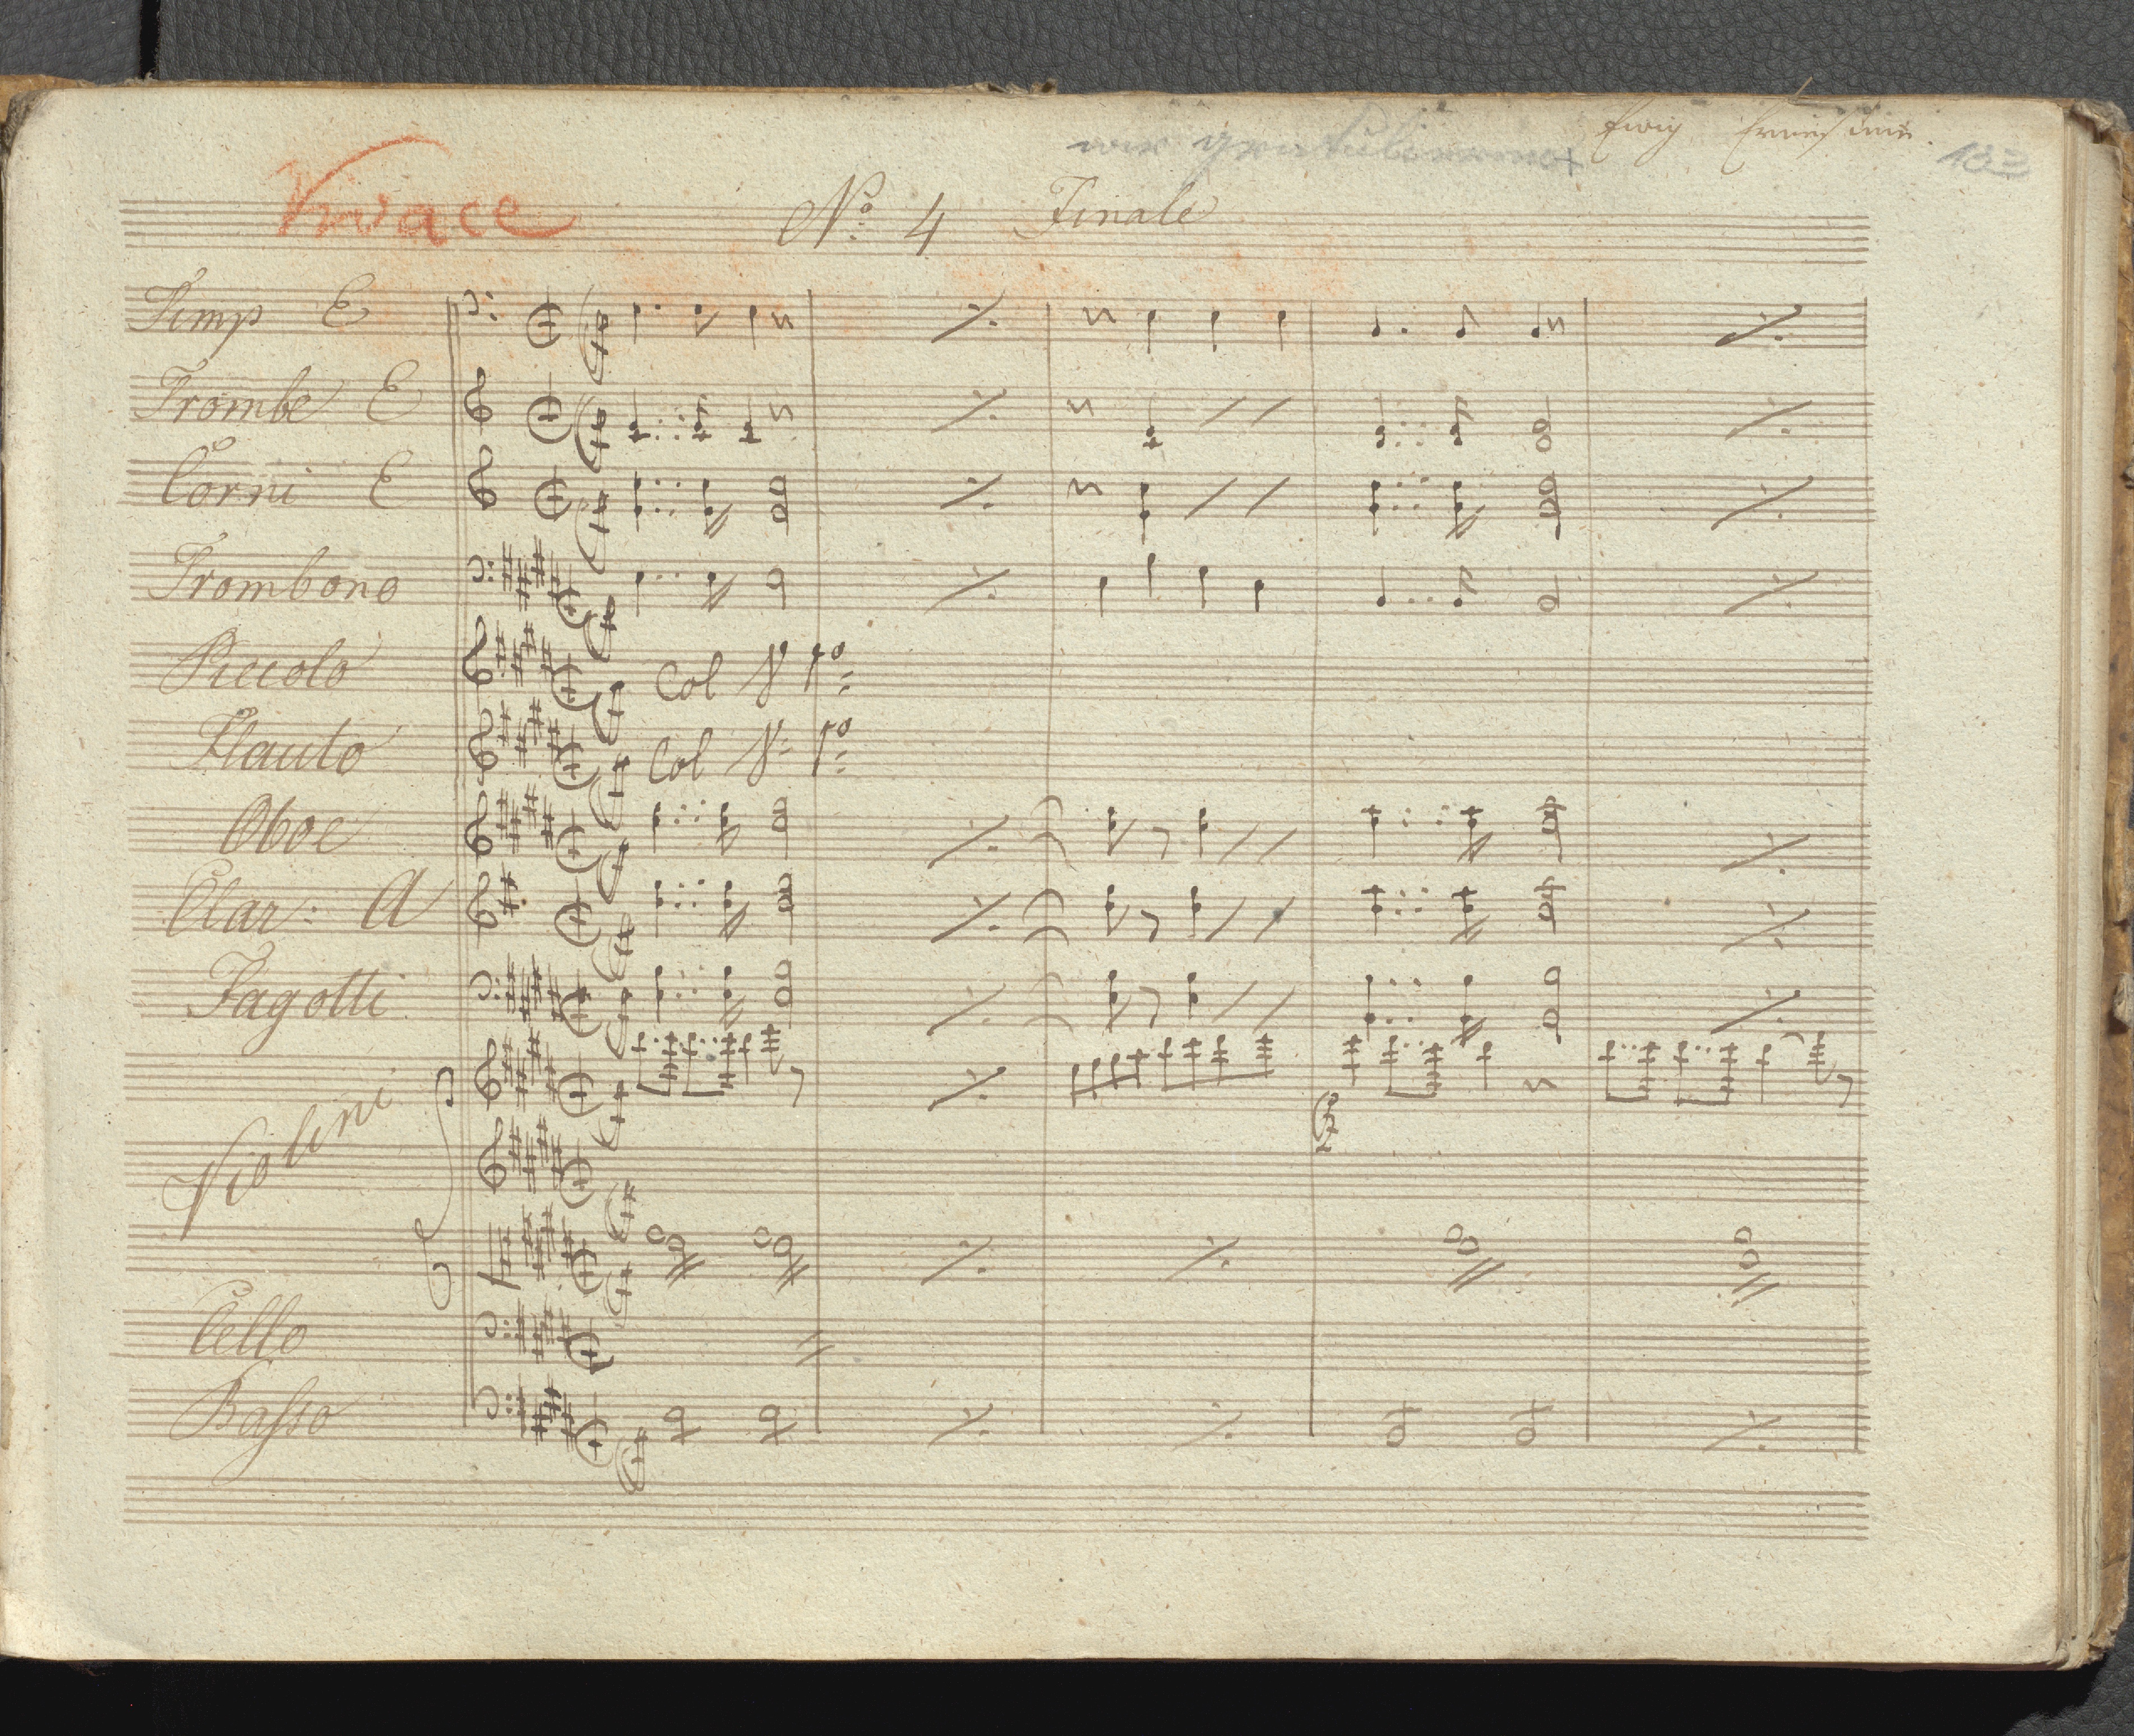 Ewig
wir gratulieren
Vivace No 4 Finale
Timp E
Trombe E
Corni E
Trombono
Piccolo Col V 1o
Flauto Col V 1o
Oboe
Clar: A
Fagotti
Violini
Cello
Basso